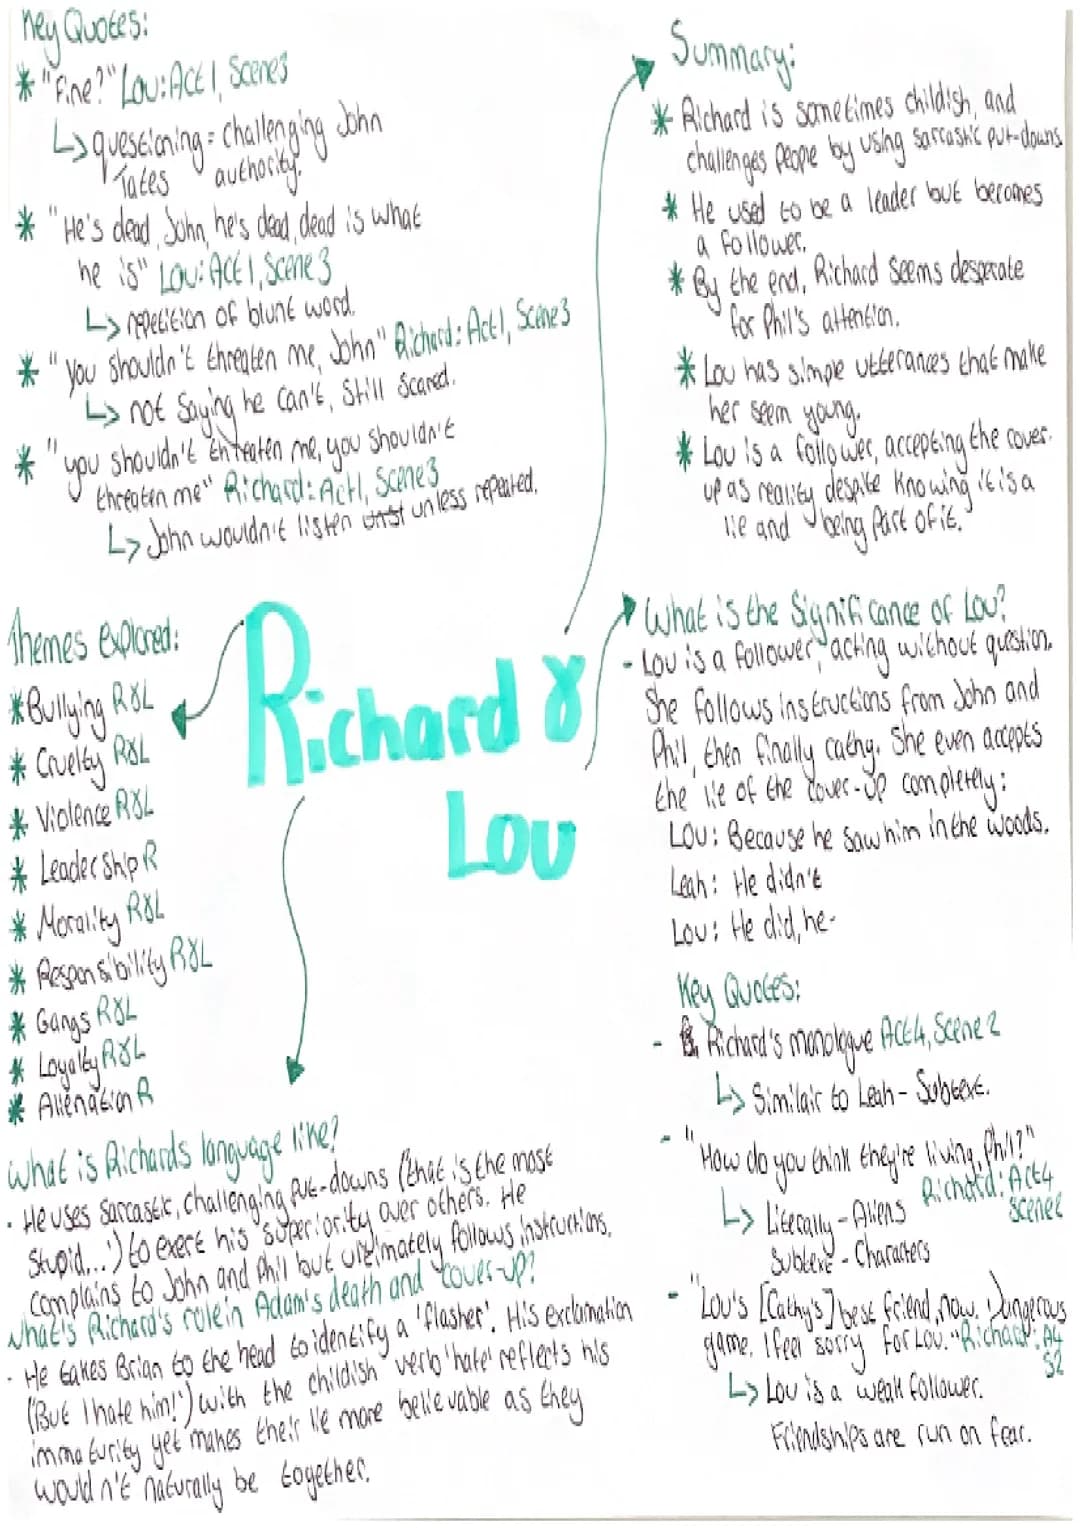 Key Quotes:
* "Fine?" Lou: Act 1, Scene3
↳ questioning = challenging John
Tates authority.
* "He's dead, John, he's dead, dead is what
he is" Lou: Act 1, Scene 3
↳ repetition of blunt word.
* "you shouldn't threaten me, John" Richard: Act1, Scene3
↳ not saying he can't, still scared.
* "you shouldn't threaten me, you shouldn't
threaten me" Richard: Act1, Scene3
↳ John wouldn't listen unless repeated.
Summary:
* Richard is sometimes childish, and
challenges people by using sarcastic put-downs
* He used to be a leader but becomes
a follower.
* By the end, Richard seems desperate
for Phil's attention.
* Lou has simple utterances that make
her seem young.
* Lou is a follower, accepting the cover-
up as reality despite knowing it is a
lie and being part of it.
Richard &
Lou
Themes explored:
* Bullying R&L
* Cruelty R&L
* Violence R&L
* Leadership R
* Morality R&L
* Responsibility R&L
* Gangs R&L
* Loyalty R&L
* Alienation R
What is the Significance of Lou?
- Lou is a follower, acting without question.
She follows instructions from John and
Phil, then finally cathy. She even accepts
the lie of the cover-up completely:
Lou: Because he saw him in the woods.
Leah: He didn't
Lou: He did, he-
Key Quotes:
- Richard's monologue Act4, Scene 2
↳ Similair to Leah - Subtext.
- "How do you think they're living, Phil?"
Richard: Act4
Scene2
↳ Literally - Aliens
Subtext - Characters
- "Lou's [Cathy's] best friend, now. Dangerous
game, I feel sorry for Lou." Richard: A4
S2
↳ Lou is a weak follower.
Friendships are run on fear.
What is Richards language like?
· He uses sarcastic, challenging put-downs ('that is the most
stupid...') to exert his superiority over others. He
complains to John and Phil but ultimately follows instructions.
What's Richard's role in Adam's death and cover-up?
· He takes Brian to the head to identify a 'flasher'. His exclamation
('But I hate him!') with the childish verb 'hate' reflects his
immaturity yet makes their lie more believable as they
wouldn't naturally be together.